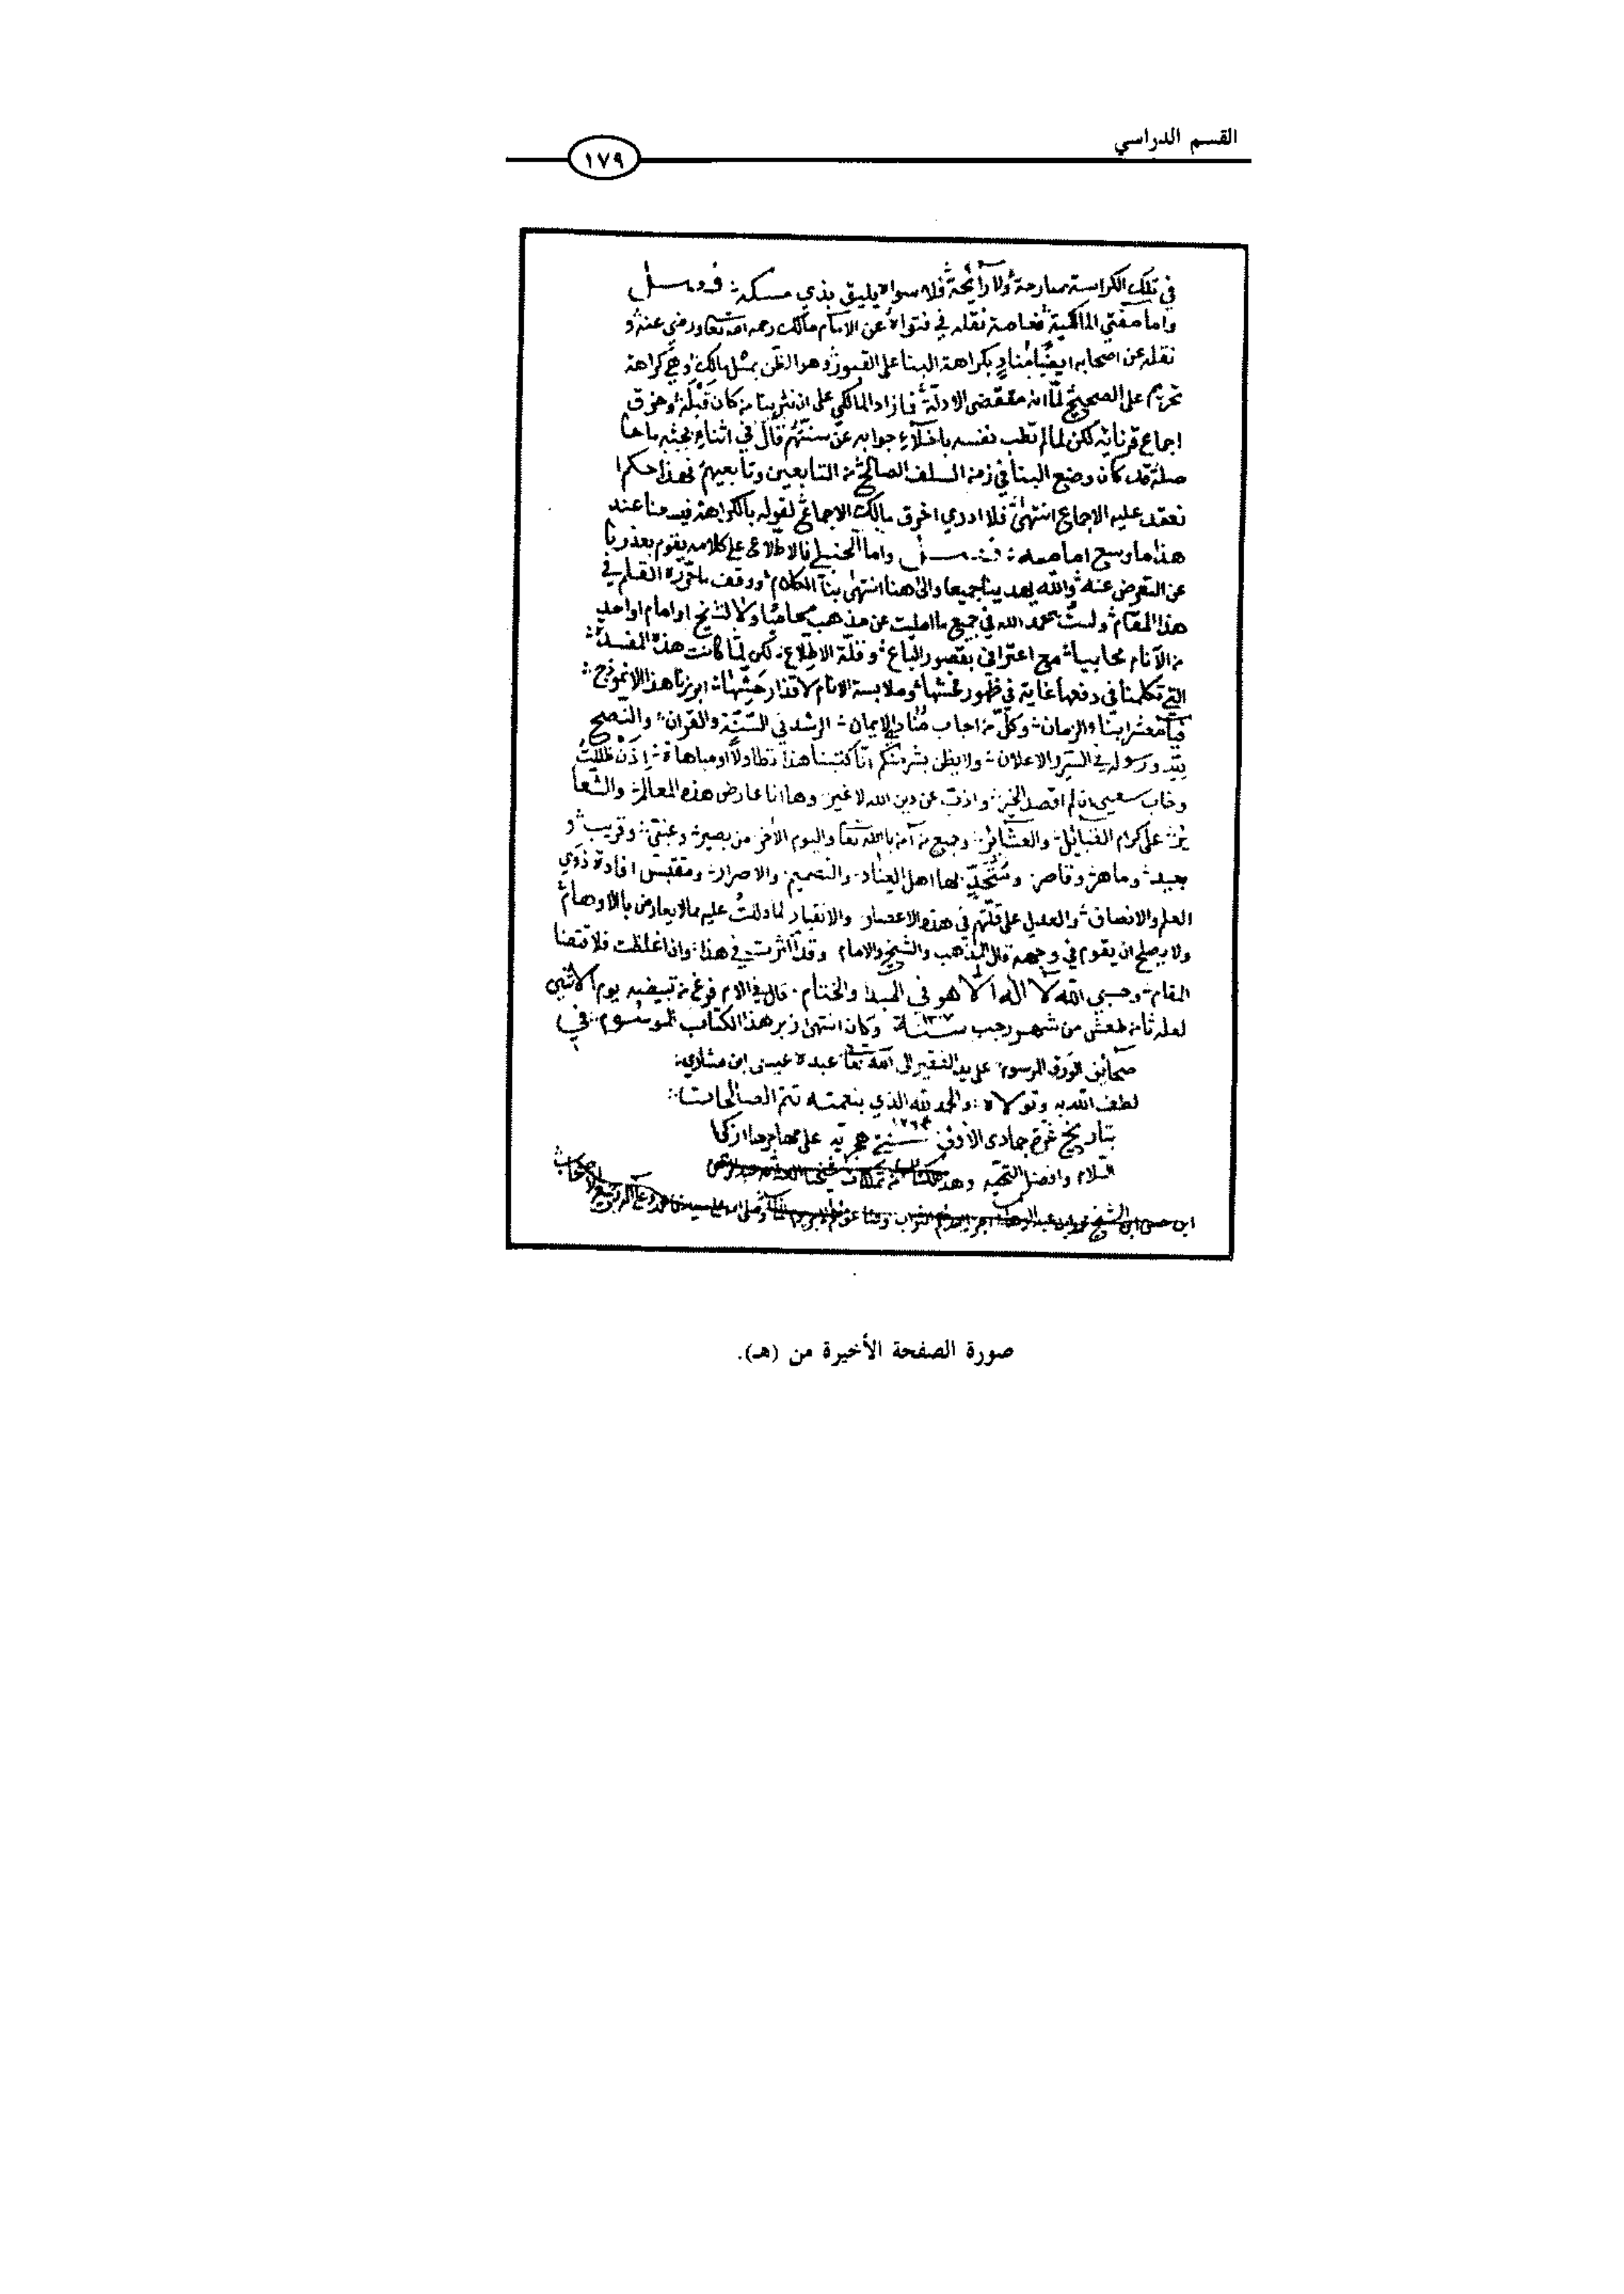 القسم الدراسي
١٧٩
في تلك الكراسة سارحة ولا رائحة فلا سواه يليق بذي مسكة فصل
واما مفتي المالكية نقله في فتواه عن الامام مالك رحمه الله تعا ورضي عنه و
نقله عن اصحابه ايضا مناد بكراهة البنا على القبور وهو الظن بمثل مالك وهي كراهة
تحريم على الصحيح لما انه مقتضى الادلة فما زاد المالكي على ان من كان قبله وخرق
اجماع لكن لما لم تطب نفسه باخلاء جوابه عن قال في اثناء بحثه ما ها
صله قد كان وضع البنا في زمن السلف الصالح من التابعين وتابعيهم فهذا حكم ا
نعقد عليه الاجماع انتهى فلا ادري اخرق مالك الاجماع لقوله بالكراهة عند
هذا ما وسع امامه فصل واما الحنبلي فالاطلاع على كلامه يقوم بعذرنا
عن التعرض عنه والله يهدينا جميعا والى هنا انتهى بنا الكلام ووقف القلم في
هذا المقام ولست بحمد الله في جميع ما امليت عن مذهب محاميا ولا لشيخ او امام او احد
من الانام محابيا مع اعترافي بقصور الباع وقلة الاطلاع لكن لما كانت هذه المفسدة
التي تكلمنا في دفعها غاية في ظهور وملابسة الانام لاقذار ابرزنا هذا الانموذج
فيا معشر ابناء الزمان وكل من اجاب مناد الايمان الرشد في السنة والقران والنصح
لله ورسوله في السر والاعلان ولا يظن بشر منكم انا كتبنا هذا تطاولا او مباهاة اذن ظللت
وخاب سعيي ان لم اقصد الخير واذب عن دين الله لا غير وها انا عارض هذه المعالم والشعا
ئر على كرام القبائل والعشائر وجميع من آمن بالله تعا واليوم الآخر من بصير وقريب و
بعيد وماهر وقاصر لها اهل العناد والتصميم والاصرار ومقتبس افادة ذوي
العلم والانصاف والعمل على قلتهم في هذه الاعصار والانقياد لما دلت عليه مما لا يعارض بالاوهام
ولا يصلح ان يقوم في وجهه قال المذهب والشيخ والامام وقد اكثرت في هذا وان اغلظت فلاقتضا
المقام وحسبي الله لا اله الا هو في المبدا والختام قال في الام فرغ من تبييضه يوم الاثنين
لعله ثامن عشر من شهر رجب سنة ١٢٠٧ وكان انتهى زبر هذا الكتاب الموسوم في
صحائف الورق المرسوم على يد الفقير الى الله تعا عبده عيسى ابن
لطف الله به وتولاه والحمد لله الذي بنعمته تتم الصالحات
بتاريخ غرة جمادى الاول سنة هجرية على مهاجرها ازكى
السلام وافضل التحية وهذا الكتاب من
ابن حسن ابن الشيخ محمد ابن عبد الوهاب
صورة الصفحة الأخيرة من (هـ).